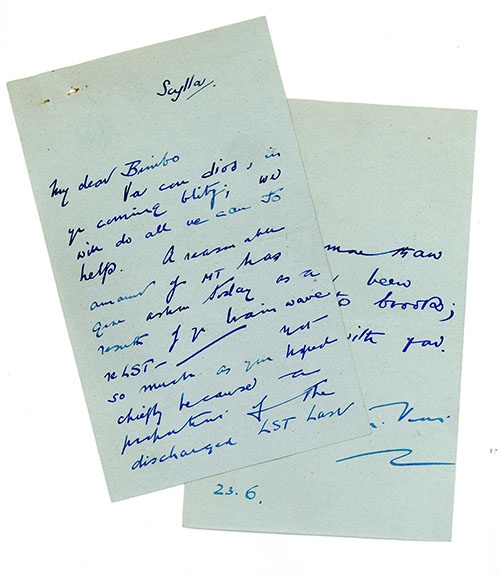 Scylla.
My dear Bimbo
Va con dios, in
yr coming blitz; we
will do all we can to
help. A reasonable
amount of MT has
gone ashore today as a
result of yr brain wave
re LST — not
so much as you hoped
chiefly because a
proportion of the
discharged LST had
more than
been
books;
with you.
23.6.